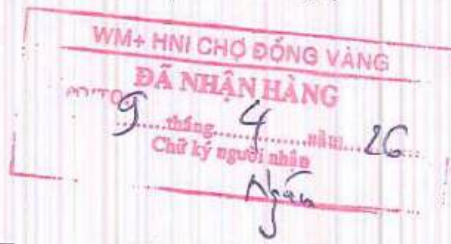 WM+ HNI CHỢ ĐỒNG VÀNG
ĐÃ NHẬN HÀNG
9 tháng 4 năm 26
Chữ ký người nhận
Ngân